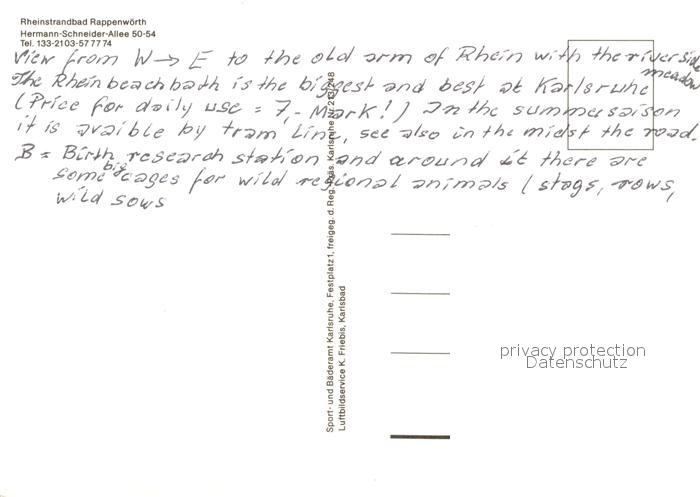 Rheinstrandbad Rappenwörth
Hermann-Schneider-Allee 50-54
Tel. 133-2103-577774
View from W → E to the old arm of Rhein with the riverside
meadow
The Rheinbeachbath is the biggest and best at Karlsruhe
(Price for daily use = 7,- Mark!) In the summersaison
it is avaible by tram line, see also in the midst the road.
B = Birth research station and around it there are
some big cages for wild regional animals (stags, rows,
wild sows
Sport- und Bäderamt Karlsruhe, Festplatz 1, freigeg. d. Reg. Präs. Karlsruhe
Luftbildservice K. Friebis, Karlsbad
privacy protection
Datenschutz